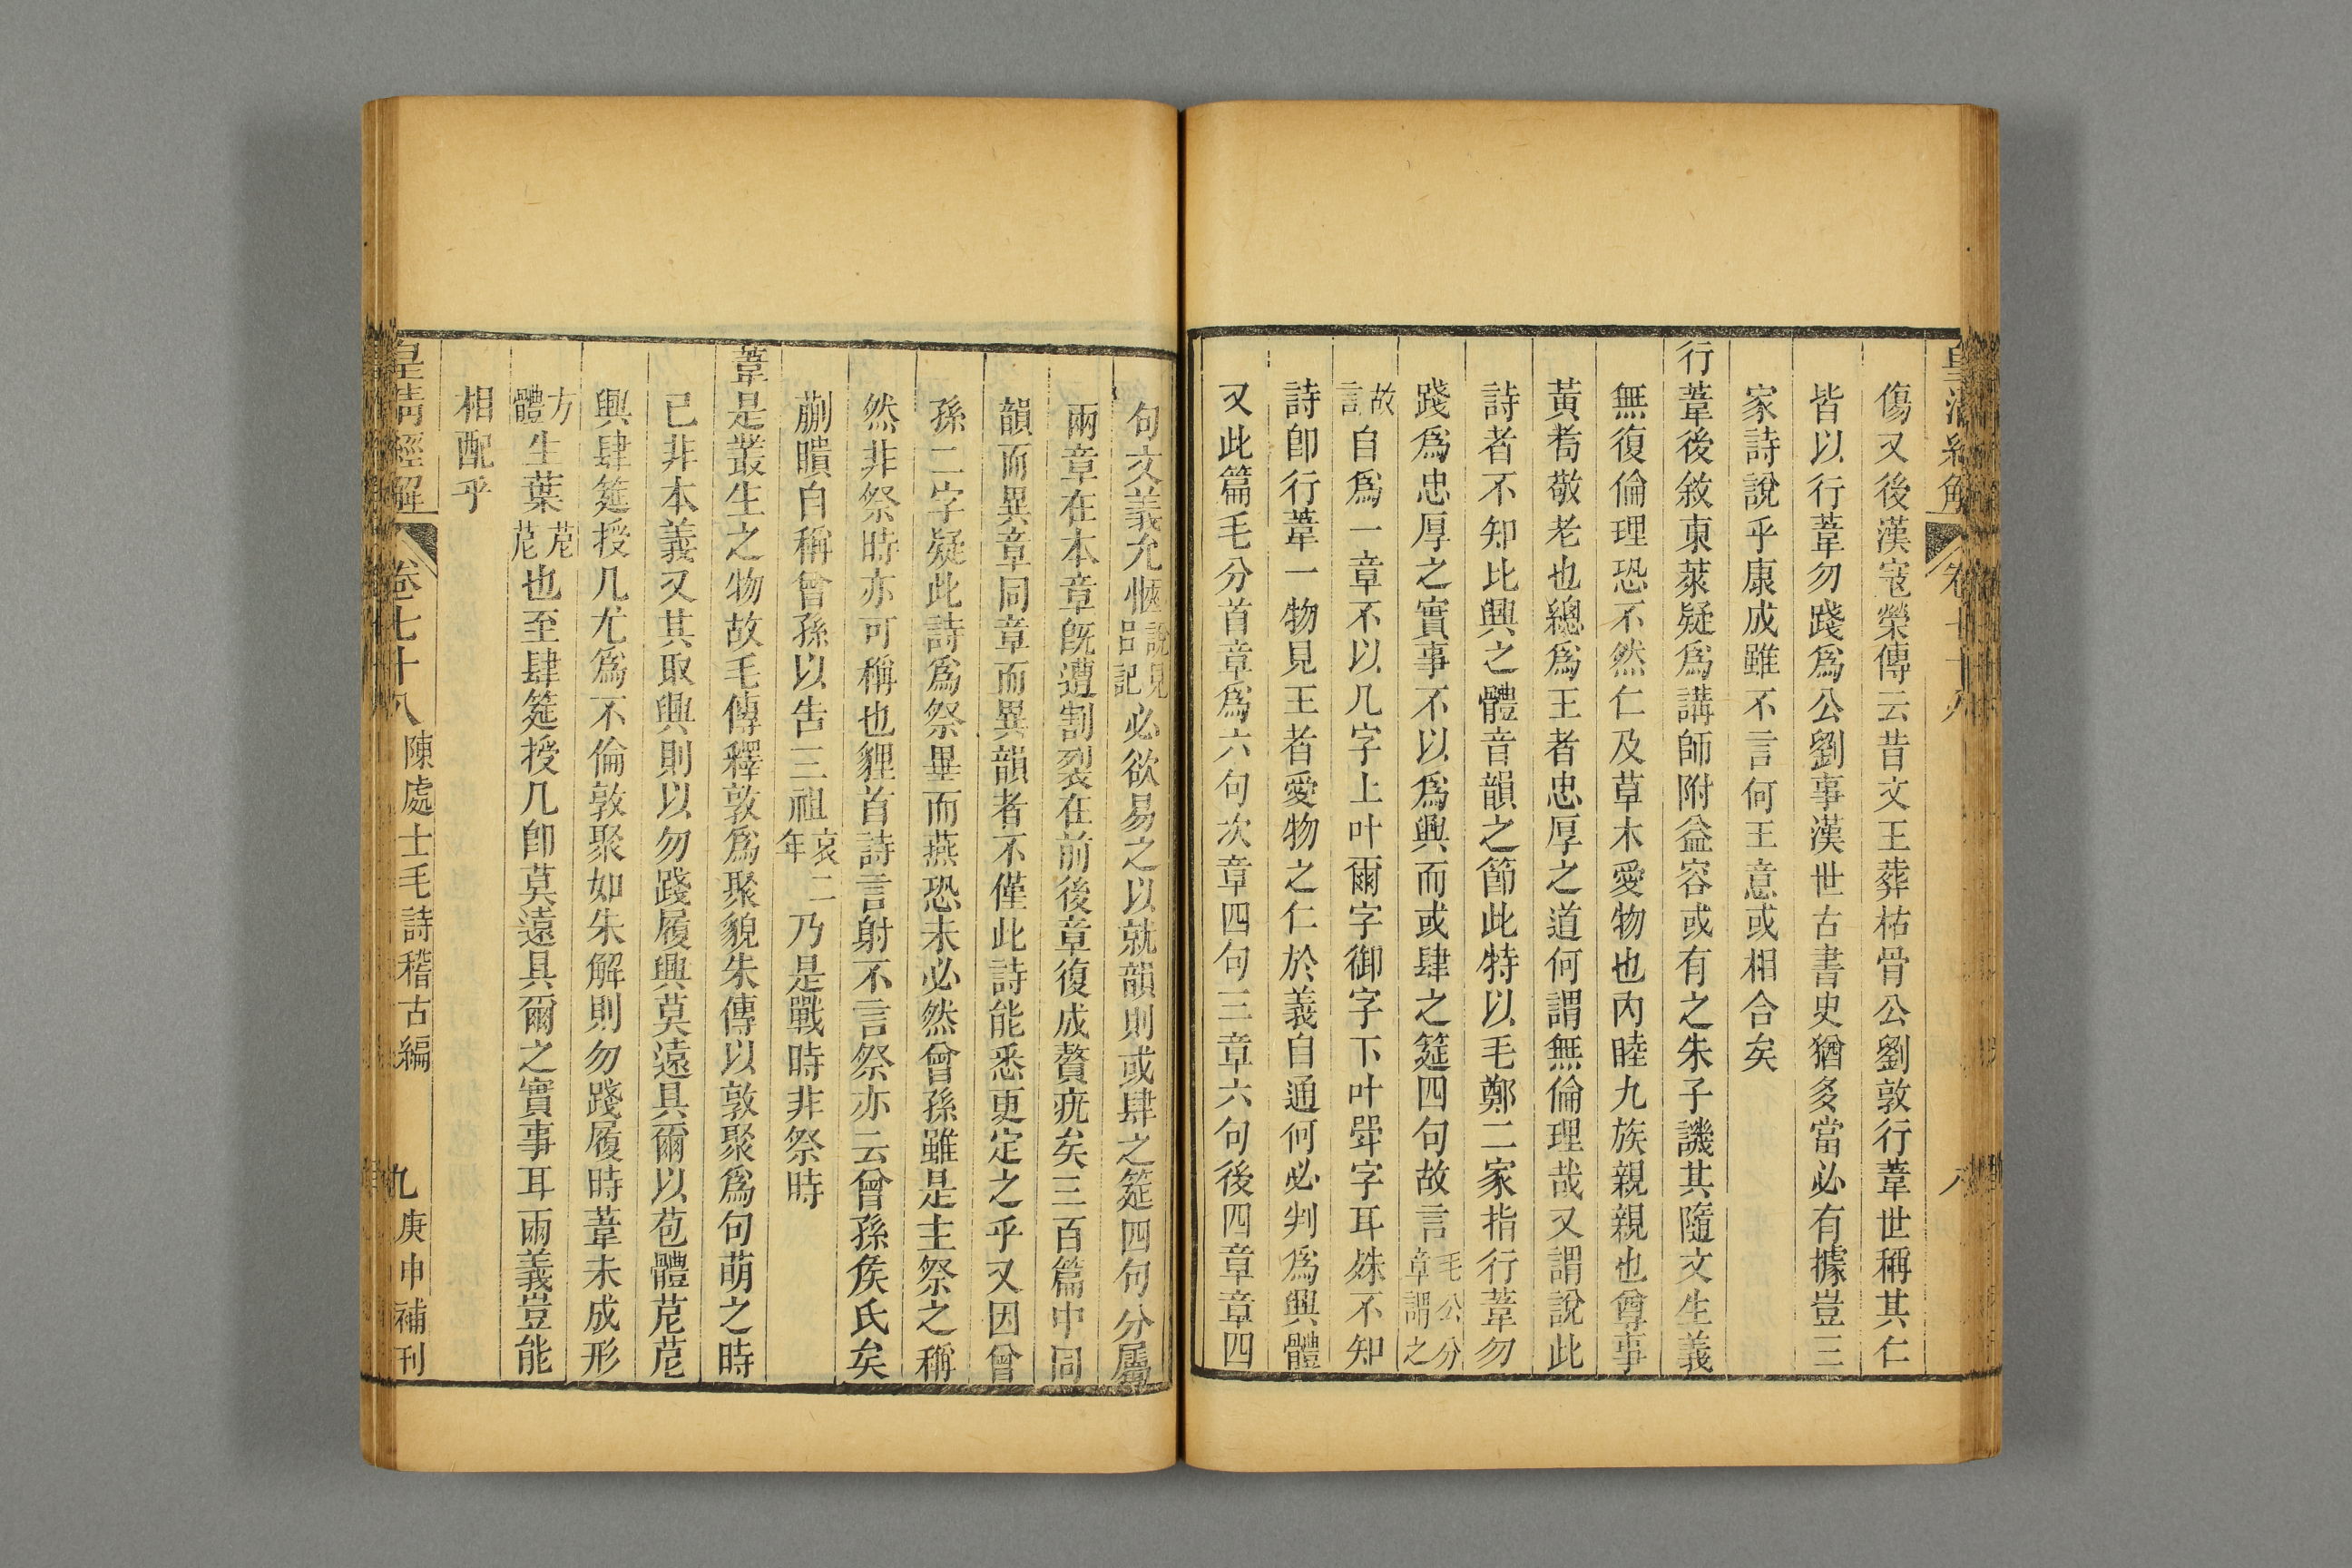 傷又後漢寇榮傳云昔文王葬枯骨公劉敦行葦世稱其仁
皆以行葦勿踐爲公劉事漢世古書史猶多當必有據豈三
家詩說乎康成雖不言何王意或相合矣
行葦後敘東萊疑爲講師附益容或有之朱子譏其隨文生義
無復倫理恐不然仁及草木愛物也內睦九族親親也尊事
黃耇敬老也總爲王者忠厚之道何謂無倫理哉又謂說此
詩者不知比興之體音韻之節此特以毛鄭二家指行葦勿
踐爲忠厚之實事不以爲興而或肆之筵四句故言毛公分章謂之
故言自爲一章不以几字上叶爾字御字下叶斝字耳殊不知
詩卽行葦一物見王者愛物之仁於義自通何必判爲興體
又此篇毛分首章爲六句次章四句三章六句後四章章四
句文義允愜說見呂記必欲易之以就韻則或肆之筵四句分屬
兩章在本章旣遭割裂在前後章復成贅疣矣三百篇中同
韻而異章同章而異韻者不僅此詩能悉更定之乎又因曾
孫二字疑此詩爲祭畢而燕恐未必然曾孫雖是主祭之稱
然非祭時亦可稱也貍首詩言射不言祭亦云曾孫侯氏矣
蒯聵自稱曾孫以告三祖哀二年乃是戰時非祭時
葦是叢生之物故毛傳釋敦爲聚貌朱傳以敦聚爲句萌之時
已非本義又其取興則以勿踐履興莫遠具爾以苞體苨苨
興肆筵授几尤爲不倫敦聚如朱解則勿踐履時葦未成形
方體生葉苨苨也至肆筵授几卽莫遠具爾之實事耳兩義豈能
相配乎
皇清經解
卷七十八
陳處士毛詩稽古編
九
庚申補刊